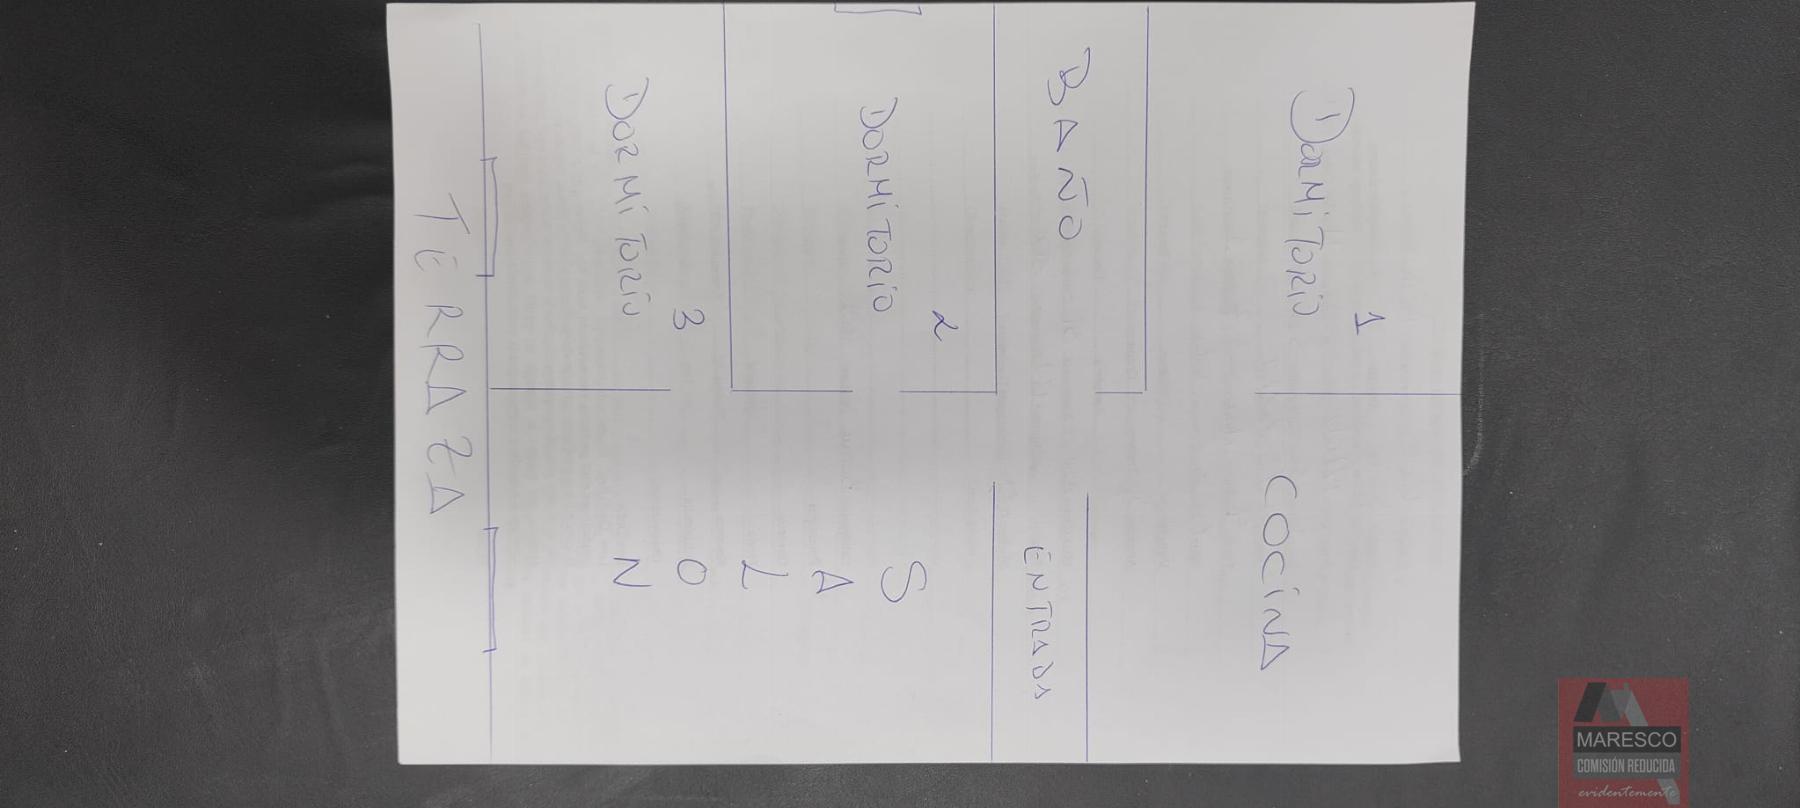 DORMiTORiO
1
BAÑO
DORMiTORiO
2
DORMiTORiO
3
COCiNA
ENTRADA
SALON
TERRAZA
MARESCO
COMISIÓN REDUCIDA
evidentemente